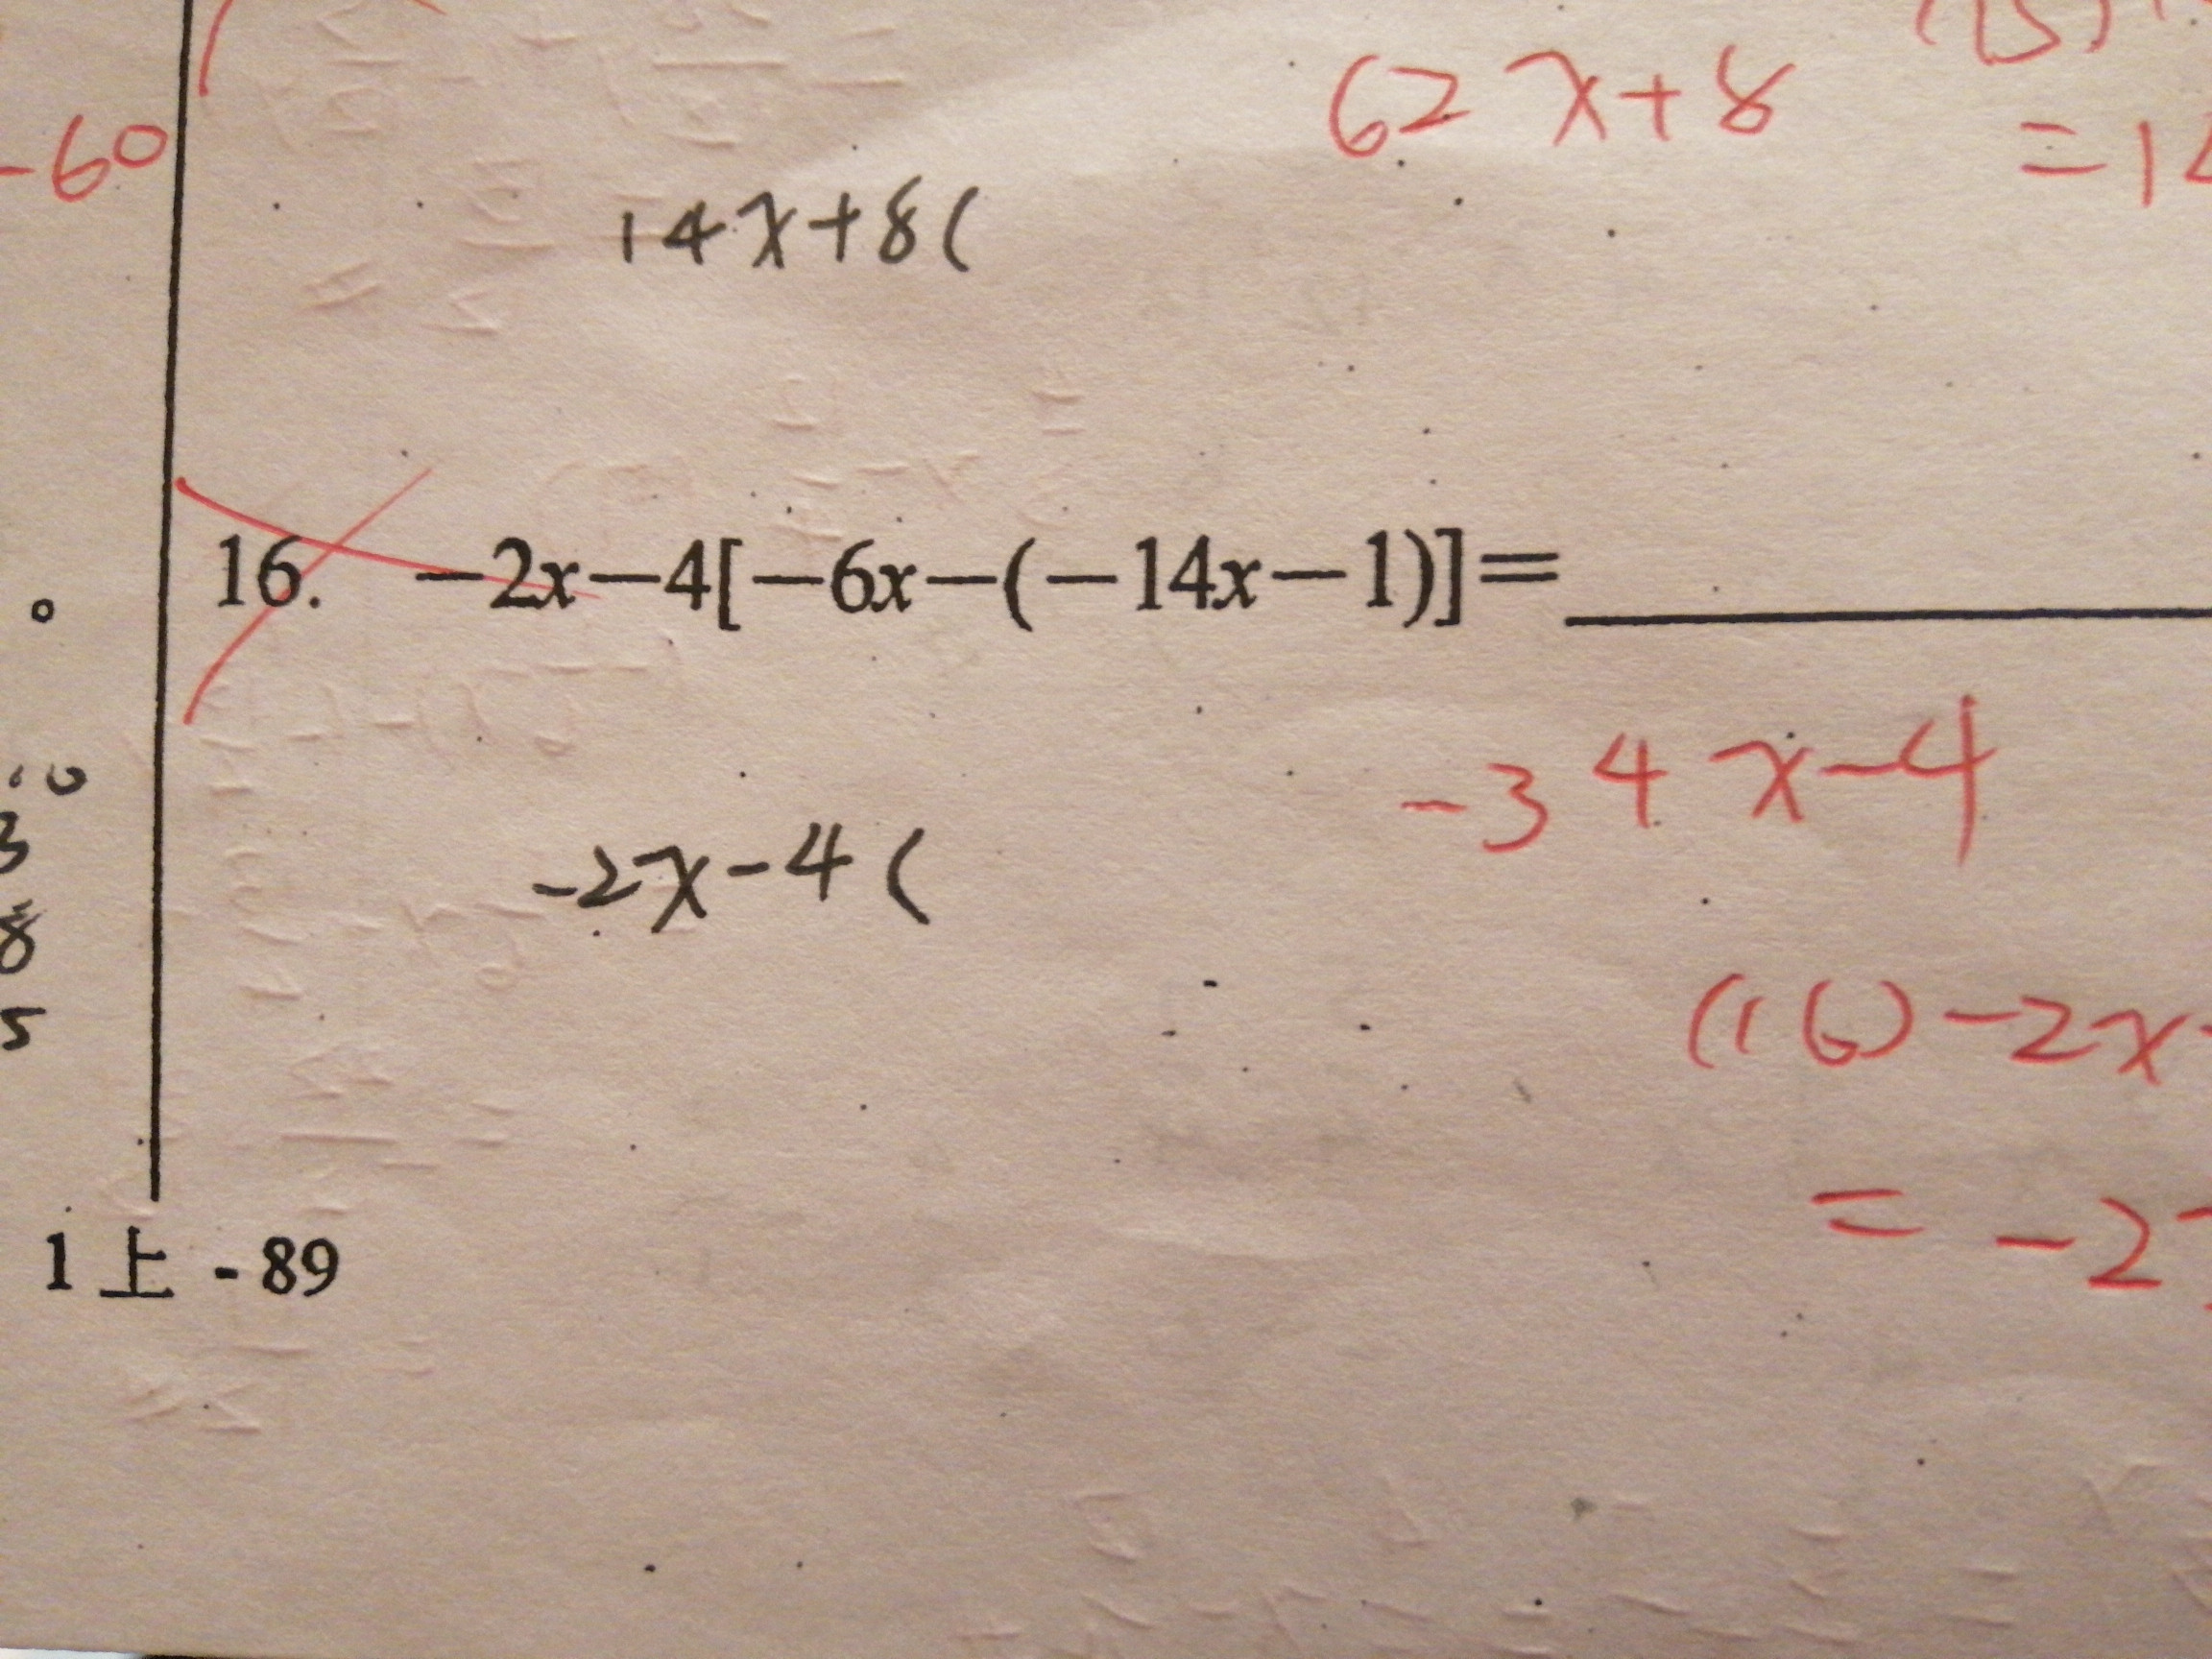 -60
62x+8
(15)
=1
14x+8(
16. －2x－4[－6x－(－14x－1)]＝
-34x-4
-2x-4(
3
8
5
(16)-2x
=-2
1上-89